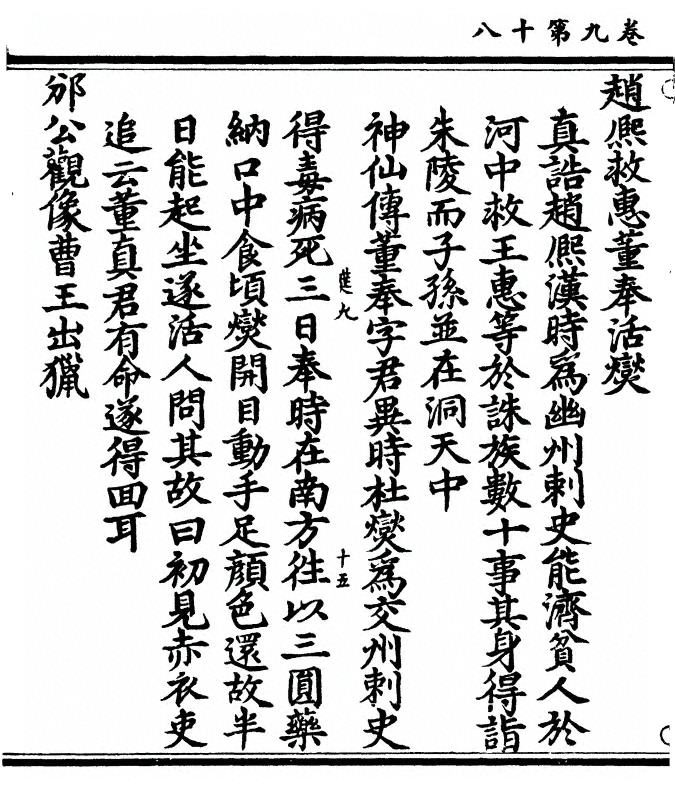 卷九第十八
趙熈救惠董奉活燮
真誥趙熈漢時爲幽州刺史能濟貧人於
河中救王惠等於誅族數十事其身得詣
朱陵而子孫並在洞天中
神仙傳董奉字君異時杜燮爲交州刺史
九
十五
得毒病死三日奉時在南方徃以三圓藥
納口中食頃燮開目動手足顔色還故半
日能起坐遂活人問其故曰初見赤衣吏
追云董真君有命遂得回耳
邠公觀像曹王出獵